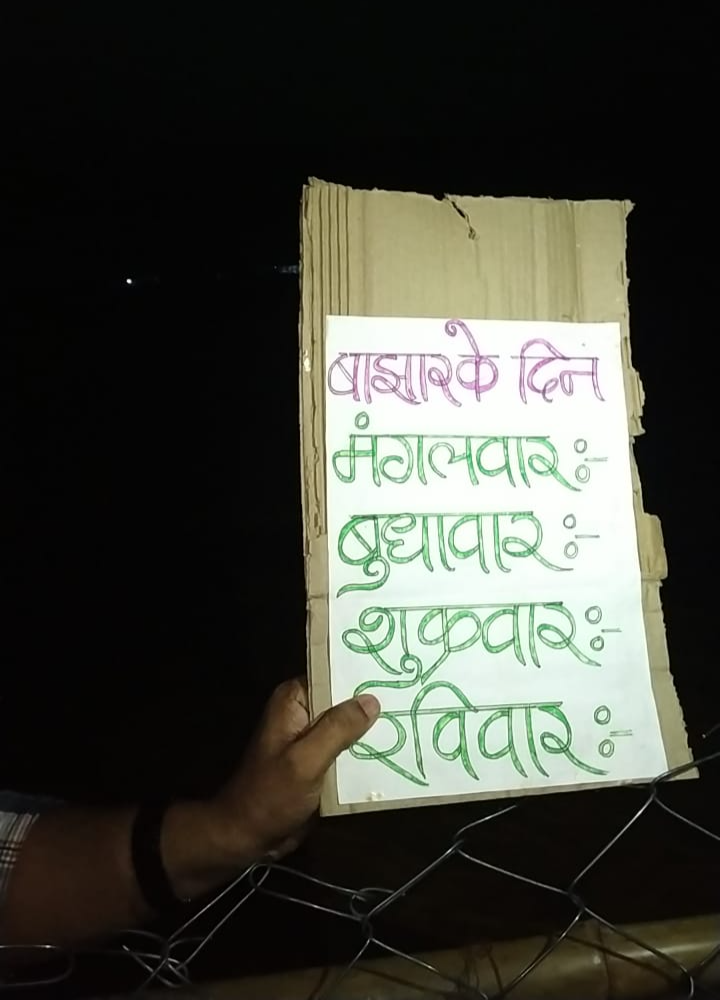 बाझारके दिन
मंगलवार :-
बुधावार :-
शुक्रवार :-
रविवार :-